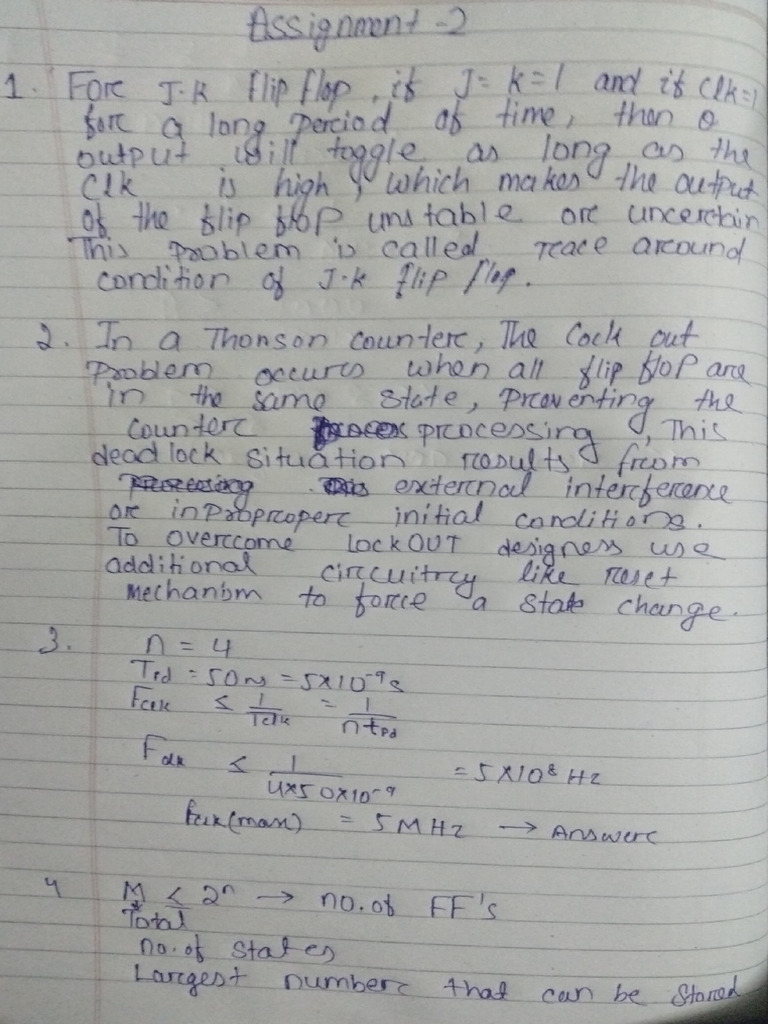 Assignment - 2
1. Forc J-K flip flop, if J = K = 1 and if Clk=1
forc a long perciod of time, then Q
output will toggle as long as the
Clk is high, which makes the output
of the flip flop unstable orc uncerctain
This problem is called rcace arcound
condition of J-K flip flop.
2. In a Thonson counterc, The Cock out
Problem occurcs when all flip flop are
in the same state, Prceventing the
counterc prcocessing, This
dead lock situation rcesults frcom
extercnal intercference
orc inproprcoperc initial conditions.
To overccome LOCKOUT designess use
additional circcuitrcy like rceset
mechanism to forcce a state change.
3. n = 4
Tpd = 50ns = 5×10⁻⁹s
Fclk ≤ 1/Tclk = 1/ntpd
Fclk ≤ 1/4×50×10⁻⁹ = 5×10⁸ Hz
fclk(max) = 5MHz → Answerc
4 M ≤ 2ⁿ → no. of FF's
Total
no. of states
Larcgest numberc that can be stored